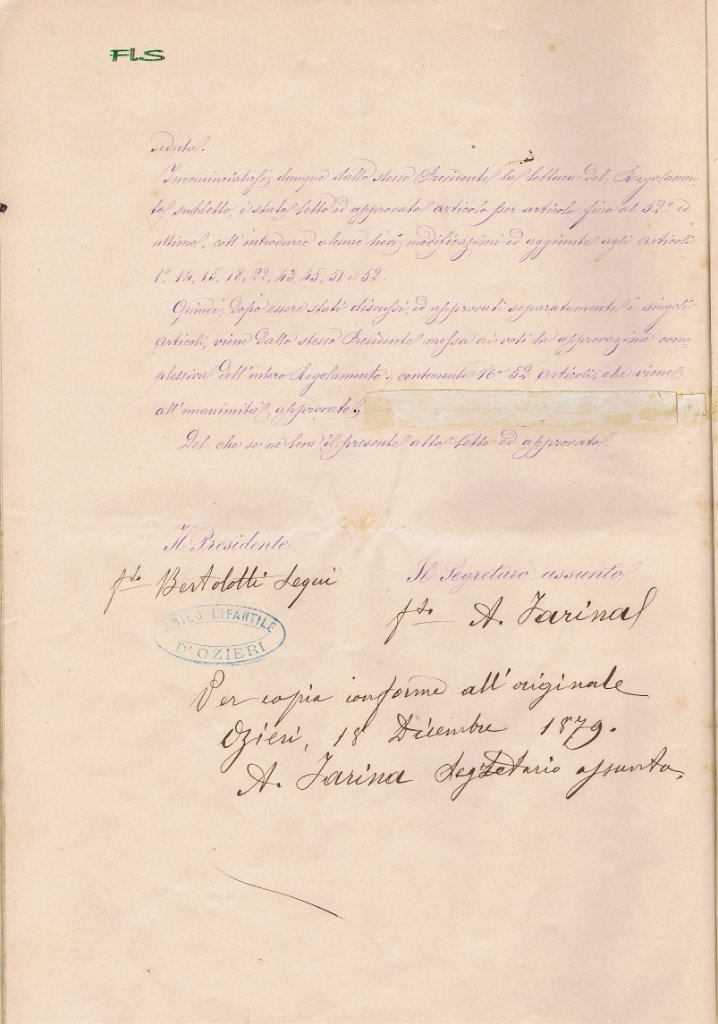 FLS
seduta.
Incominciatasi, dunque dallo stesso Presidente la lettura del Regolamen-
to suddetto, è stato letto ed approvato articolo per articolo fino al 52° ed
ultimo, coll'introdurre alcune lievi modificazioni ed aggiunte agli articoli
1°, 14, 15, 18, 22, 43, 45, 51 e 52.
Quindi, dopo essere stati discussi, ed approvati separatamente i singoli
articoli, viene dallo stesso Presidente messa ai voti la approvazione com-
plessiva dell'intero Regolamento, contenente N° 52 articoli, che viene
all'unanimità, approvato.
Del che se ne leva il presente atto letto ed approvato.
Il Presidente
fto Bertolotti Sequi
Il Segretaro assunto
fto A. Farina
ASILO INFANTILE
D'OZIERI
Per copia conforme all'originale
Ozieri, 18 Dicembre 1879.
A. Farina Segretario assunto.